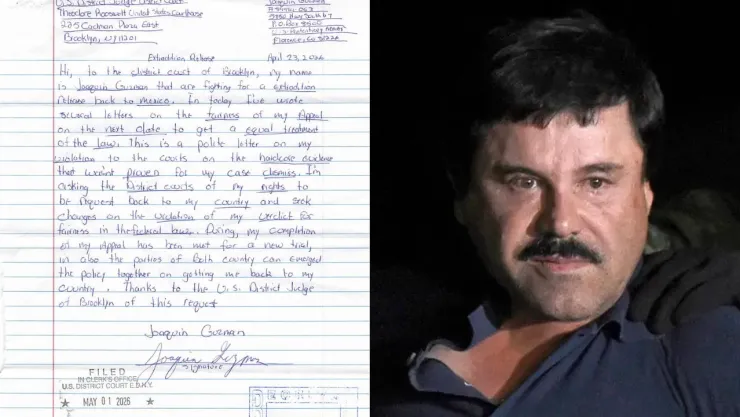 U.S. District Judge District Court
Theodore Roosevelt United States Courthouse
225 Cadman Plaza East
Brooklyn, NY 11201
Joaquin Guzman
P.O. Box 8500
Florence, CO 81226
Extradition Release April 23, 2026
Hi, to the district court of Brooklyn, my name
is Joaquin Guzman that are fighting for a extradition
release back to mexico. In today I've wrote
several letters on the fairness of my Appeal
on the next date to get a equal treatment
of the law. This is a polite letter on my
violation to the courts on the hardcore evidence
that wasn't proven for my case dismiss. I'm
asking the District courts of my rights to
be request back to my country and seek
changes on the violation of my verdict for
fairness in the federal law. During, my completion
of my Appeal has been met for a new trial,
in also the parties of both country can emerged
the policy together on getting me back to my
country. Thanks to the U.S. District Judge
of Brooklyn of this request
Joaquin Guzman
Joaquin Guzman
Signature
FILED
IN CLERK'S OFFICE
U.S. DISTRICT COURT E.D.N.Y.
★ MAY 01 2026 ★